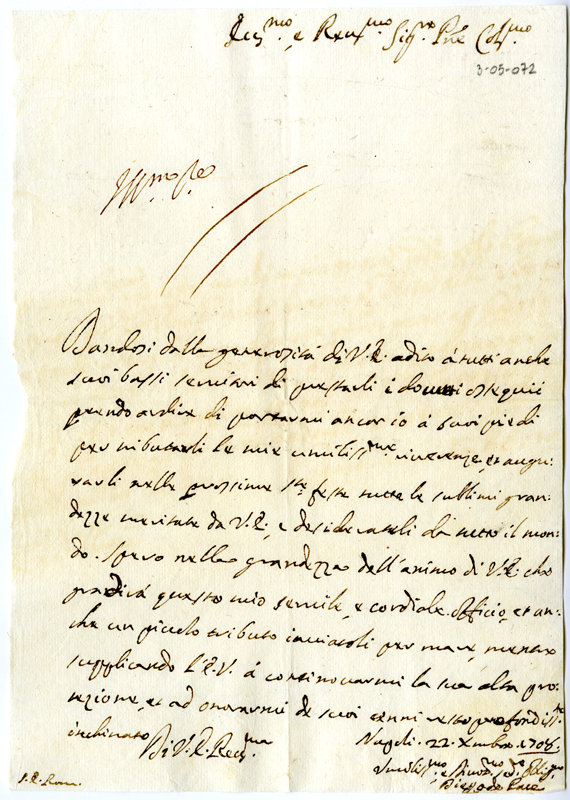 Ecc.mo e Rev.mo Sig.re Pne Col.mo
3-05-072
Dandosi dalla generosità di V.E. adito à tutti anche
suoi bassi servitori di prestarli i dovuti ossequii
prendo ardire di portarmi ancor io à suoi piedi
per tributarli le mie umiliss.me riverenze, et augu-
rarli nelle prossime S.te feste tutte le sublimi gran-
dezze meritate da V.E., e desiderateli da tutto il mon-
do. Spero nella grandezza dell'animo di V.E. che
gradirà questo mio servile, e cordiale officio, et an-
che un piccolo tributo inviatoli per mare, mentre
supplicando l'E.V. à continovarmi la sua alta pro-
tezione, et ad onorarmi de suoi cenni resto profondiss.te
inchinato Di V.E. Rev.ma
Napoli. 22. Xmbre. 1708.
Umiliss.mo, e Devot.mo Ser. Oblig.mo
Diego de Pace
S.E. Rom.